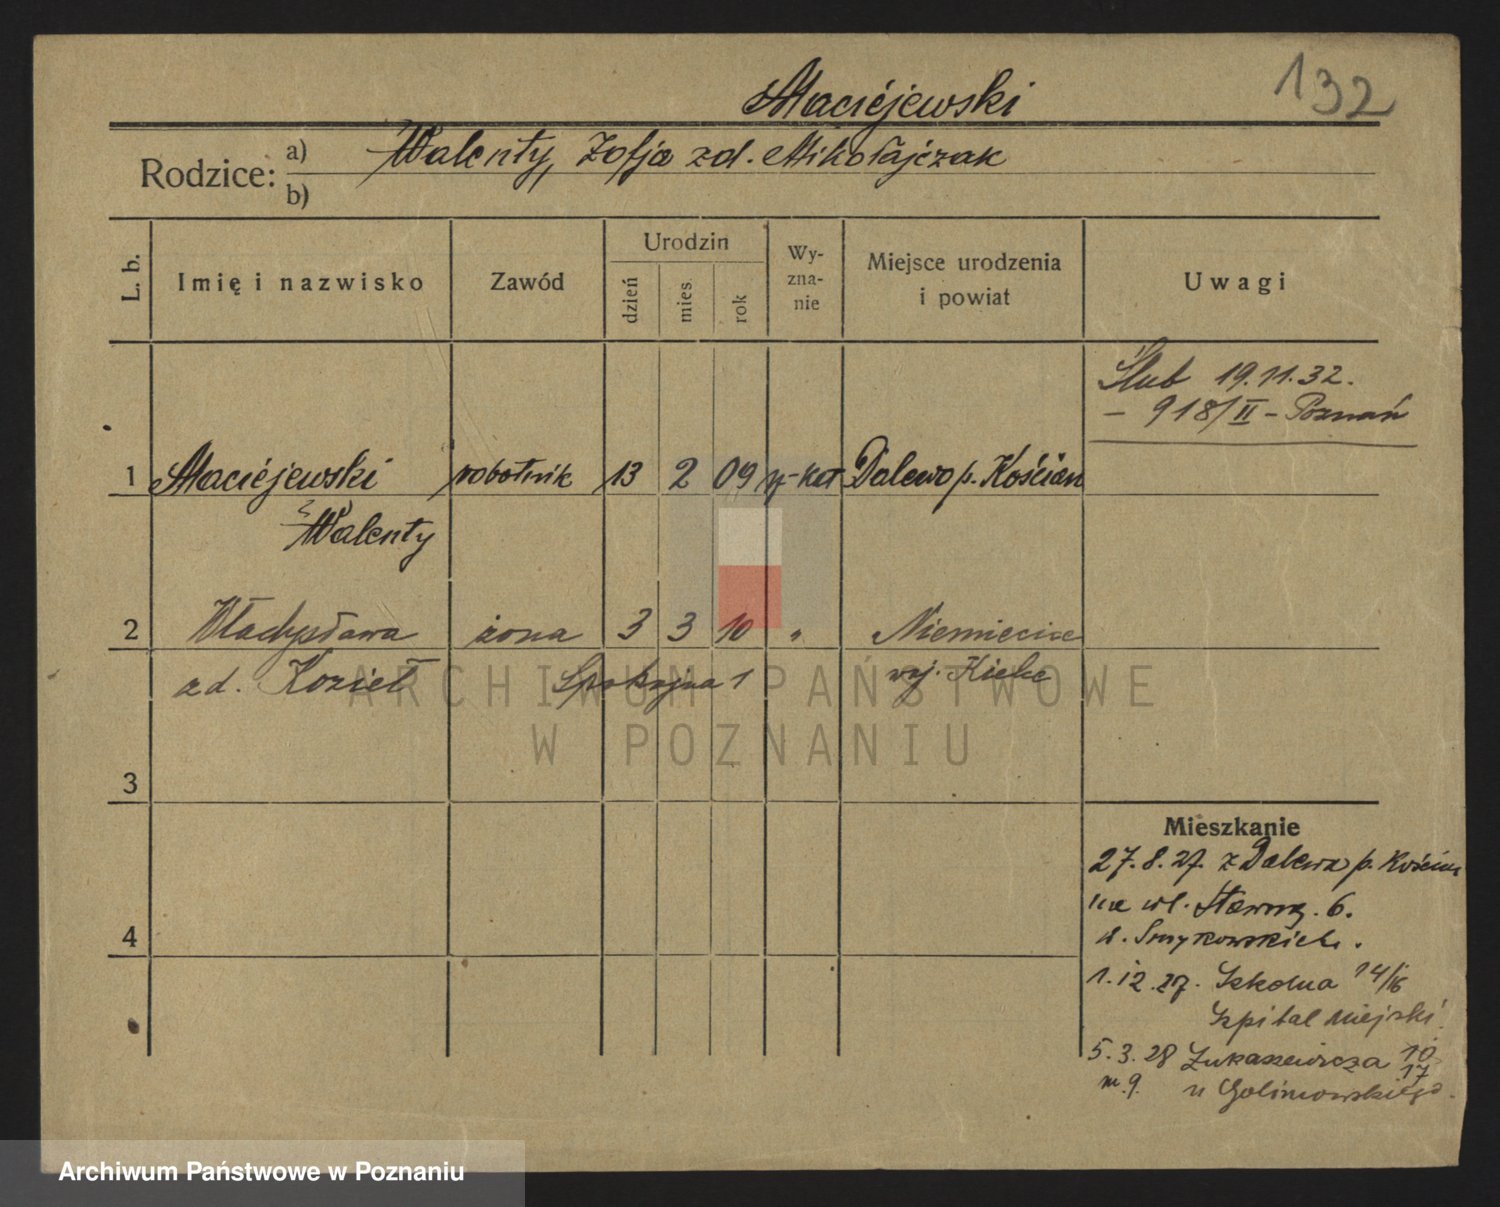 132
Maciejewski
Rodzice: a) Walenty, Zofja zd. Mikołajczak
b)
L. b. Imię i nazwisko Zawód Urodzin dzień mies rok Wy-zna-nie Miejsce urodzenia i powiat Uwagi
Ślub 19.11.32.
– 918/II – Poznań
1 Maciejewski robotnik 13 2 09 rz-kat Dalewo p. Kościan
Walenty
2 Władysława żona 3 3 10 " Niemiecice
zd. Kozieł Spokojna 1 woj. Kielce
ARCHIWUM PAŃSTWOWE
W POZNANIU
3
Mieszkanie
27.8.27. z Dalewa p. Kościan
4 na ul. Stawną. 6.
u. Smykowskich.
1.12.27. Szkolna 14/16
Szpital Miejski.
5.3.28 Łukaszewicza 10
17
m.9. u Golimowskiego.
Archiwum Państwowe w Poznaniu